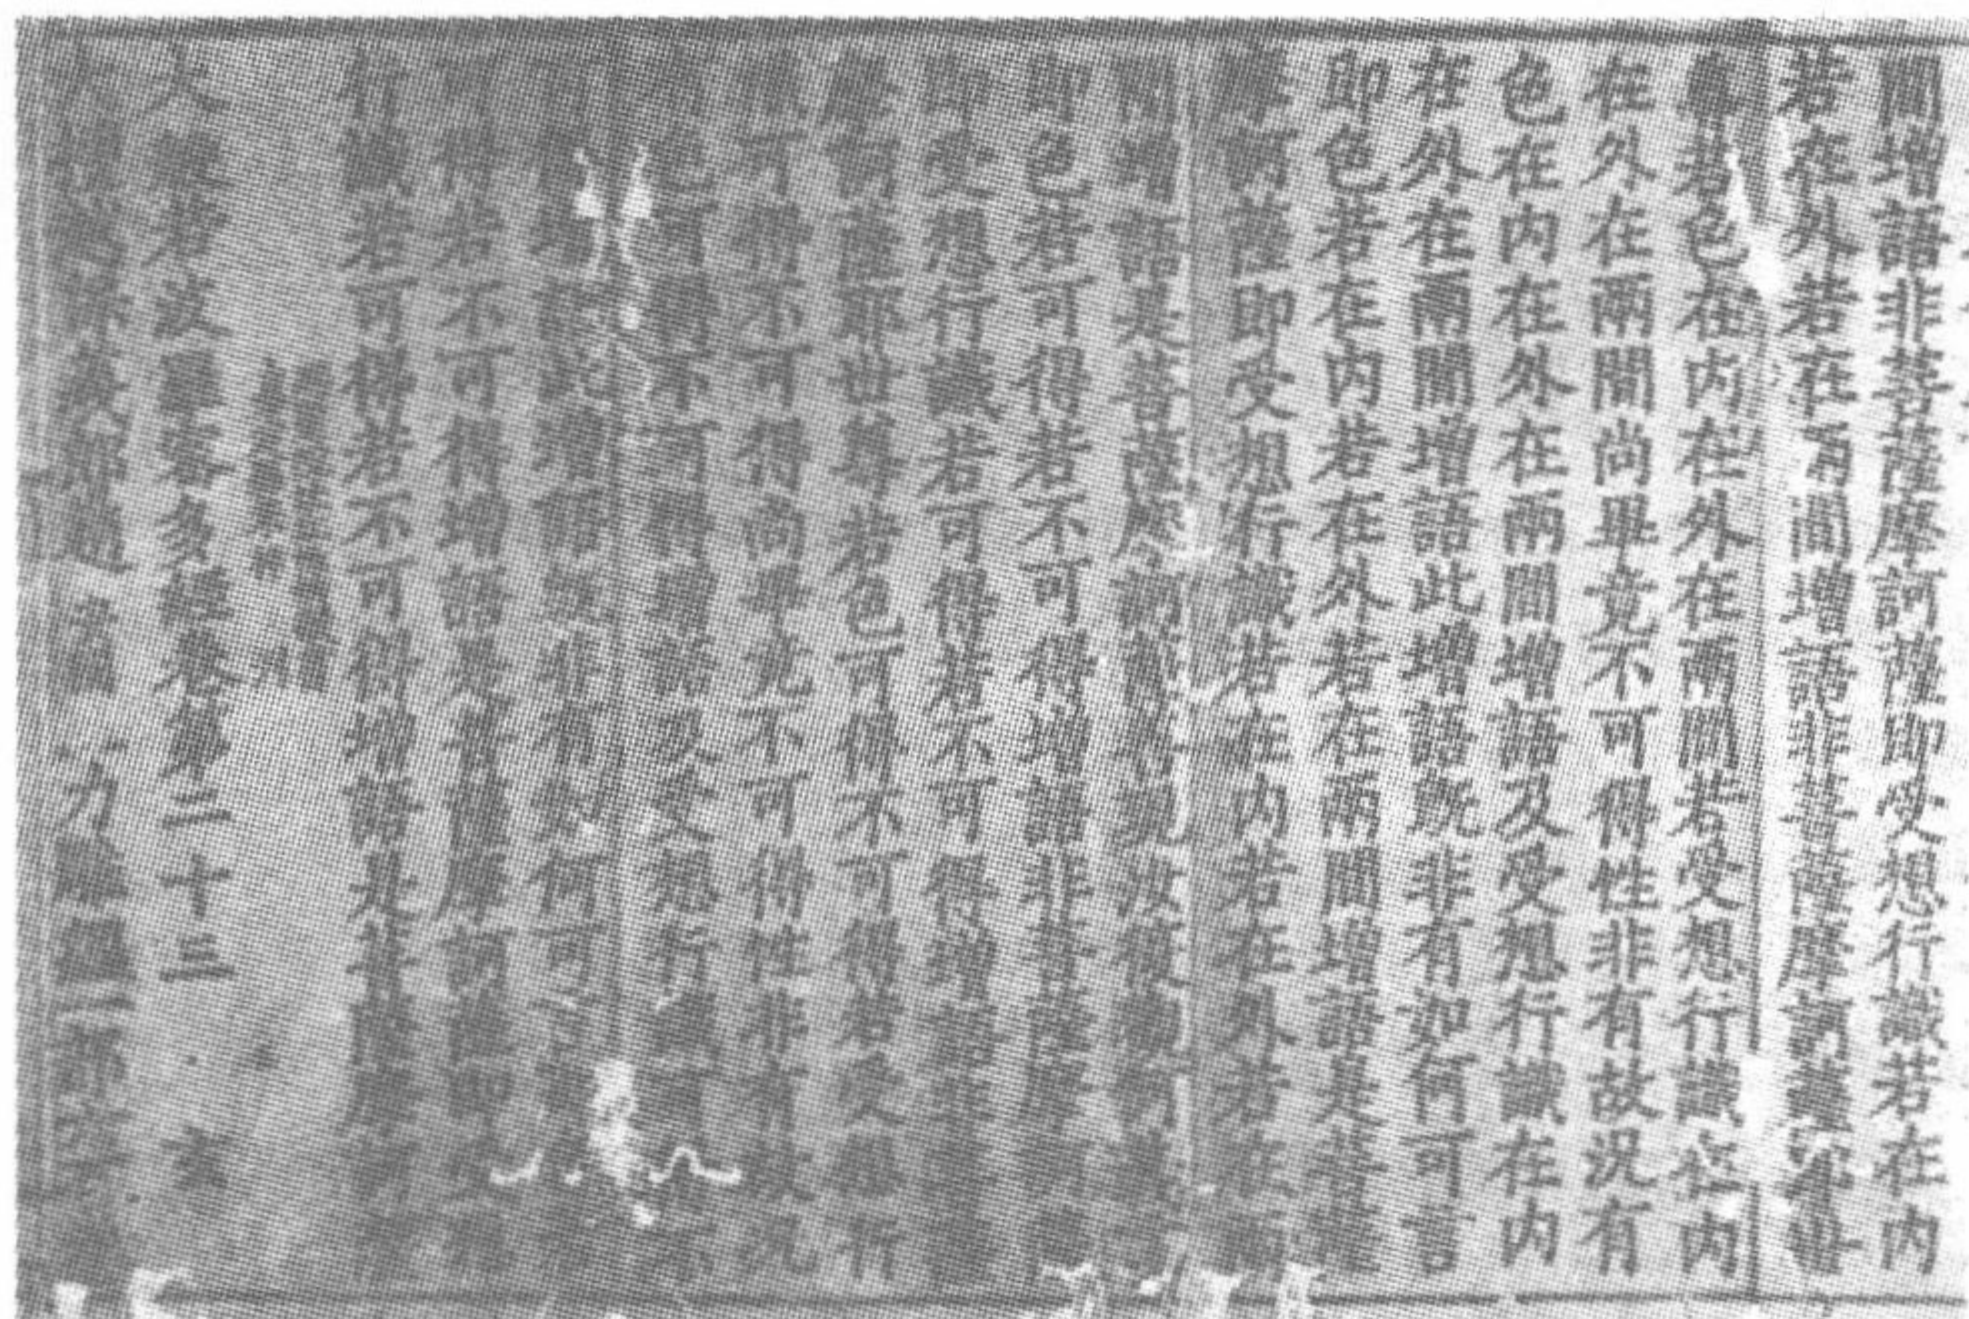 間增語非菩薩摩訶薩即受想行識若在內
若在外若在兩間增語非菩薩摩訶薩耶世
尊若色在內在外在兩間若受想行識在內
在外在兩間尚畢竟不可得性非有故況有
色在內在外在兩間增語及受想行識在內
在外在兩間增語此增語既非有如何可言
即色若在內若在外若在兩間增語是菩薩
摩訶薩即受想行識若在內若在外若在兩
間增語是菩薩摩訶薩善現汝復觀何義言
即色若可得若不可得增語非菩薩摩訶薩
即受想行識若可得若不可得增語非菩薩
摩訶薩耶世尊若色可得不可得若受想行
識可得不可得尚畢竟不可得性非有故況
有色可得不可得增語及受想行識可得不
可得增語此增語既非有如何可言即色若
可得若不可得增語是菩薩摩訶薩即受想
行識若可得若不可得增語是菩薩摩訶薩
大般若波羅蜜多經卷第二十三